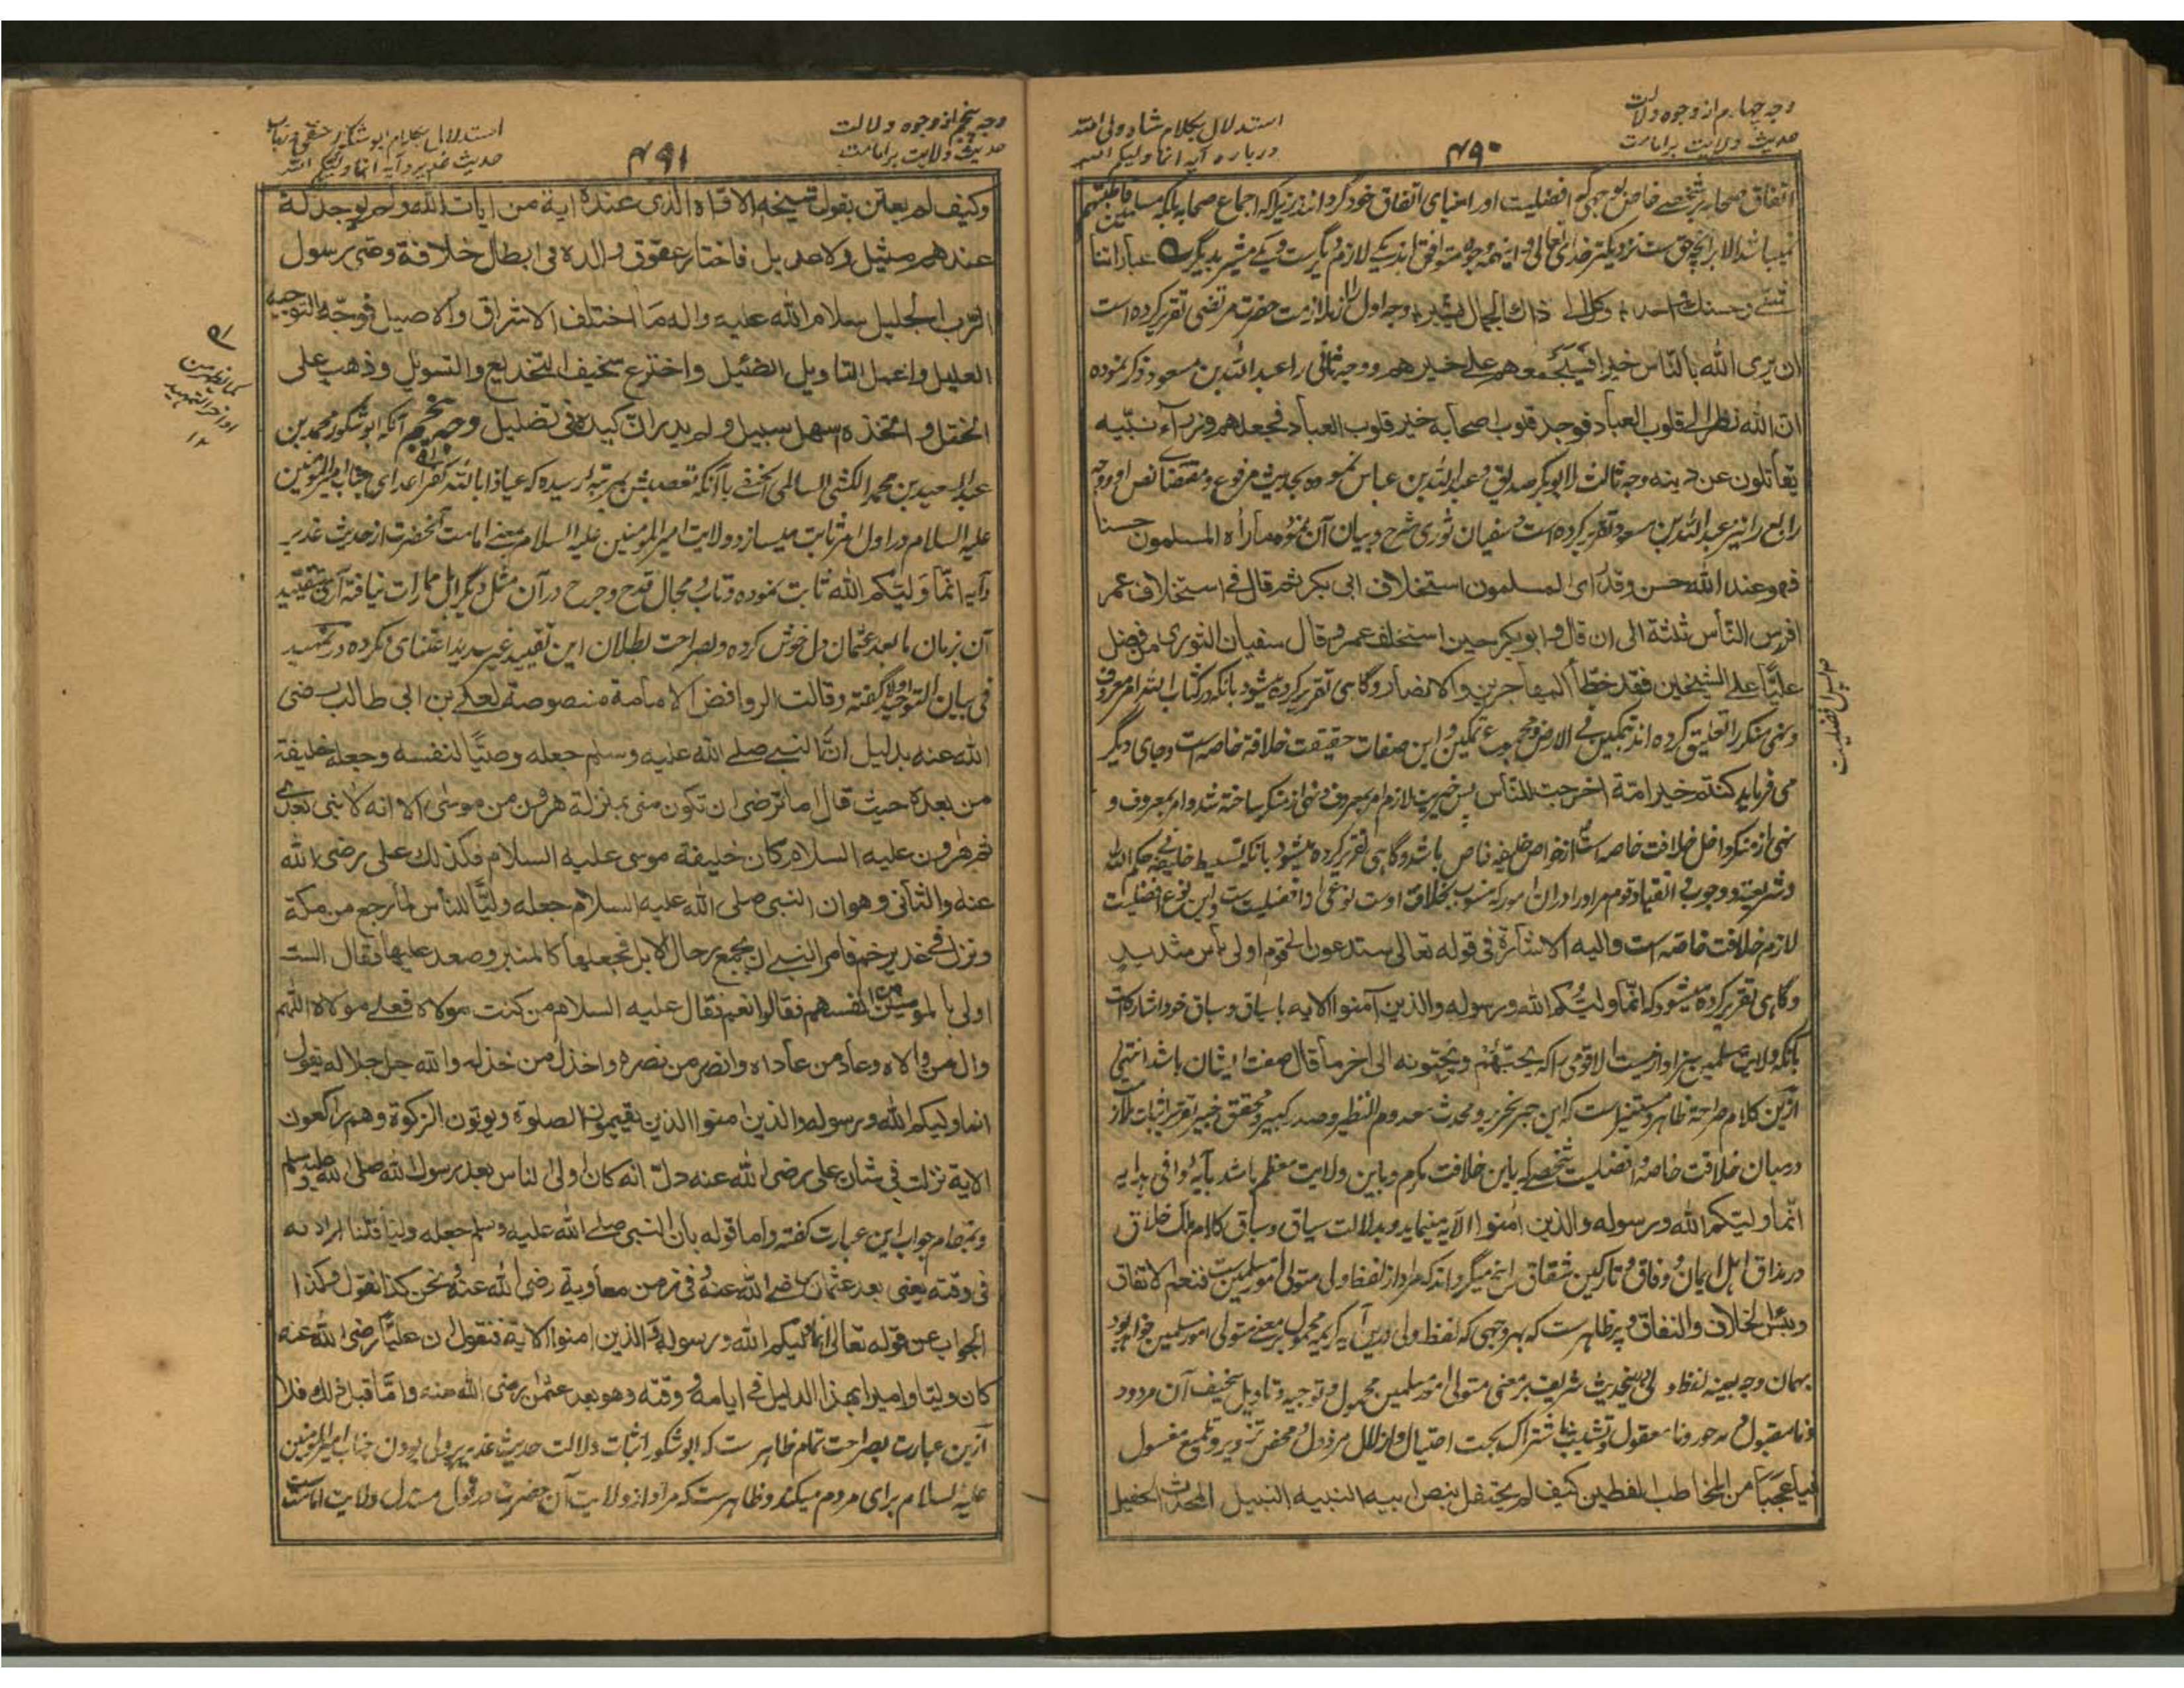 وجه چهارم از وجوه دلالت
حدیث ولایت بر امامت
۴۹۰
استدلال بکلام شاه ولی الله
درباره آیه انما ولیکم الله
اتفاق صحابه بر شخصی خاص بوجهی که افضلیت اورا مبنای اتفاق خود گردانند زیرا که اجماع صحابه بلکه مسلمین قاطبتهم
نمیباشد الا بر آنچه حق ست نزدیکتر خدای تعالی و این همه وجوه متوافق اند یکی لازم دیگرست و یکی مشیر بدیگر عباراتنا
شتی وحسنك واحد وكل الى ذاك الجمال يشير وجه اول را زملازمت حضرت مرتضی تقریر کرده است
ان يرى الله بالناس خيرا فسيجمعهم على خيرهم ووجه ثانی را عبدالله بن مسعود ذکر نموده
ان الله نظر الى قلوب العباد فوجد قلوب اصحابه خير قلوب العباد فجعلهم وزراء نبيه
يقاتلون عن دينه وجه ثالث را ابوبکر صدیق و عبدالله بن عباس نموده بحدیث مرفوع و مقتضای نص او و وجه
رابع را نیز عبدالله بن مسعود تقریر کرده است و سفیان ثوری شرح و بیان آن نموده ما رأه المسلمون حسنا
فهو عند الله حسن وقد رأى المسلمون استخلاف ابی بکر ثم قال فی استخلاف عمر
افرس الناس ثلثة الى ان قال وابوبكر حين استخلف عمر وقال سفيان الثوری من فضل
عليًا على الشيخين فقد خطّأ المهاجرين والانصار وگاهی تقریر کرده میشود بانکه در کتاب الله امر معروف
ونهی منکر را تعلیق کرده اند بتمکین فی الارض و مجموع تمکین و این صفات حقیقت خلافة خاصه است و جای دیگر
می فرماید كنتم خير امّة اخرجت للناس پس خیریت لازم امر بمعروف ونهی از منکر ساخته شد وامر بمعروف و
نهی از منکر داخل خلافت خاصه است از خواص خلیفه خاص باشد و گاهی تقریر کرده میشود بانکه تسلیط خلیفه حکم الله
وشریعته ووجوب انقیاد قوم مر اورا در ان امور که منسوب بخلافة اوست نوعی از افضلیت ست و این نوع افضلیت
لازم خلافت خاصه است واليه الاشارة فی قوله تعالی ستدعون الى قوم اولی بأس شديد
وگاهی تقریر کرده میشود که انّما ولیّکم الله ورسوله والذین آمنوا الایه با سیاق و سباق خود اشاره است
بانکه ولایت مسلمین سزاوار نیست الا قومی را که يحبّهم ويحبّونه الى اخر ما قال صفت ایشان باشد انتهی
ازین کلام صراحة ظاهر و مستنیر است که این حبر نحریر و محدث معدوم النظیر و صدر کبیر و محقق خبیر تقریر اثبات تلازم
درمیان خلافت خاصه و افضلیت شخصی که باین خلافت مکرم و باین ولایت معظم باشد بآیه وافی هدایه
انّما ولیّکم الله ورسوله والذین آمنوا الآیه مینماید و بدلالت سیاق و سباق کلام ملک خلاق
در مذاق اهل ایمان و وفاق و تارکین شقاق راسخ میگرداند که مراد از لفظ ولی متولی امور مسلمین ست فنعم الاتفاق
وبئس الخلاف والنفاق و پر ظاهر ست که بهر وجهی که لفظ ولی درین آیه کریمه محمول بر معنی متولی امور مسلمین خواهد بود
بهمان وجه بعینه لفظ ولی در حدیث شریف بر معنی متولی امور مسلمین محمول و توجیه و تاویل سخیف آن مردود
ونا مقبول و مدحور و نا معقول و تشبث باشتراک بحت احتیال و ازلال مرذول و محض تزویر و تلمیع مغسول
فيا عجبًا من المخاطب الفطين كيف لم يحتفل بنص ابيه النبيه النبيل المحدث الحفيل
دلیل افضلیت
وجه پنجم از وجوه دلالت
حدیث ولایت بر امامت
۴۹۱
استدلال بکلام ابوشکور حنفی درباب
حدیث غدیر و آیه انما ولیکم الله
وكيف لم يعتن بقول شيخه الاقاه الذی عنده اية من ايات الله ولم يوجد له
عندهم مثيل ولا عديل فاختار عقوق والده فی ابطال خلافة وصی رسول
الرب الجليل سلام الله عليه واله ما اختلف الاشراق والاصيل فوجّه التوجيه
العليل واعمل التاويل الضئيل واخترع سخيف التخديع والتسويل وذهب على
الختل واتخذه اسهل سبيل ولم يدر ان كيده فی تضليل وجه پنجم آنکه ابوشکور محمد بن
عبدالسعید بن محمد الکشی السالمی الحنفی با آنکه تعصبش بمرتبه رسیده که عیاذا بالله نفی اعدای جناب امیرالمؤمنین
علیه السلام در اول امر ثابت میسازد ولایت امیرالمؤمنین علیه السلام بمعنی امامت آنحضرت از حدیث غدیر
وآیه انّما ولیّکم الله ثابت نموده و تاب و مجال قدح و جرح در آن مثل دیگر اهل ممارات نیافته آری بتقیید
آن بزمان ما بعد عثمان دل خوش کرده و بصراحت بطلان این تقیید غیر سدید اعتنای نکرده در تمهید
فی بیان التوحید اولا گفته وقالت الروافض الامامة منصوصة لعلی بن ابی طالب رضی
الله عنه بدليل انّ النبی صلى الله عليه وسلم جعله وصيًّا لنفسه وجعله خليفة
من بعده حيث قال اما ترضى ان تكون منی بمنزلة هرون من موسى الا انه لا نبی بعدی
ثم هرون عليه السلام كان خليفة موسى عليه السلام فكذلك علی رضی الله
عنه والثانی وهو ان النبی صلى الله عليه السلام جعله وليًّا للناس لما رجع من مكة
ونزل فی غدير خم فامر النبی ان يجمع رحال الابل فجعلها كالمنبر وصعد عليها فقال الست
اولى بالمؤمنين من انفسهم فقالوا نعم فقال عليه السلام من كنت مولاه فعلی مولاه اللهم
وال من والاه وعاد من عاداه وانصر من نصره واخذل من خذله والله جل جلاله يقول
انما وليكم الله ورسوله والذين امنوا الذين يقيمون الصلوة ويوتون الزكوة وهم راكعون
الاية نزلت فی شان علی رضی الله عنه دلّ انه كان اولى الناس بعد رسول الله صلى الله عليه وسلم
وبمقام جواب این عبارت گفته واما قوله بان النبی صلى الله عليه وسلم جعله وليًا قلنا اراد به
فی وقته يعنی بعد عثمان رضی الله عنه وفی زمن معاوية رضی الله عنه ونحن كذا نقول وكذا
الجواب عن قوله تعالى انما وليكم الله ورسوله والذين امنوا الاية فنقول ان عليًّا رضی الله عنه
كان وليًا واميرا بهذا الدليل فی ايامه ووقته وهو بعد عثمٰن رضی الله عنه وامّا قبل ذلك فلا
ازین عبارت بصراحت تمام ظاهر ست که ابوشکور اثبات دلالت حدیث غدیر بر ولی بودن جناب امیرالمؤمنین
علیه السلام برای مردم میکند و ظاهر ست که مراد از ولایت آن حضرت در قول مستدل ولایت امامت ست
۱۲